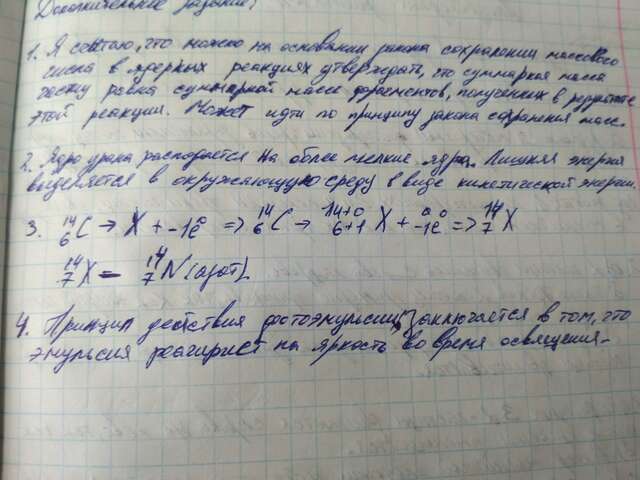 Дополнительное задание:
1. Я считаю, что можно на основании закона сохранении массового
числа в ядерных реакциях утверждать, что суммарная масса
равна суммарной массе фрагментов, полученных в результате
этой реакции. Может идти по принципу закона сохранения масс.
2. Ядро урана распадается на более мелкие ядра. Лишняя энергия
выделяется в окружающую среду в виде кинетической энергии.
3. ¹⁴₆C → X + ₋₁e⁰ => ¹⁴₆C → ¹⁴⁺⁰₆₊₁X + ⁰₋₁e⁰ => ¹⁴₇X
¹⁴₇X = ¹⁴₇N (азот).
4. Принцип действия фотоэмульсии, заключается в том, что
эмульсия реагирует на яркость во время освящения.